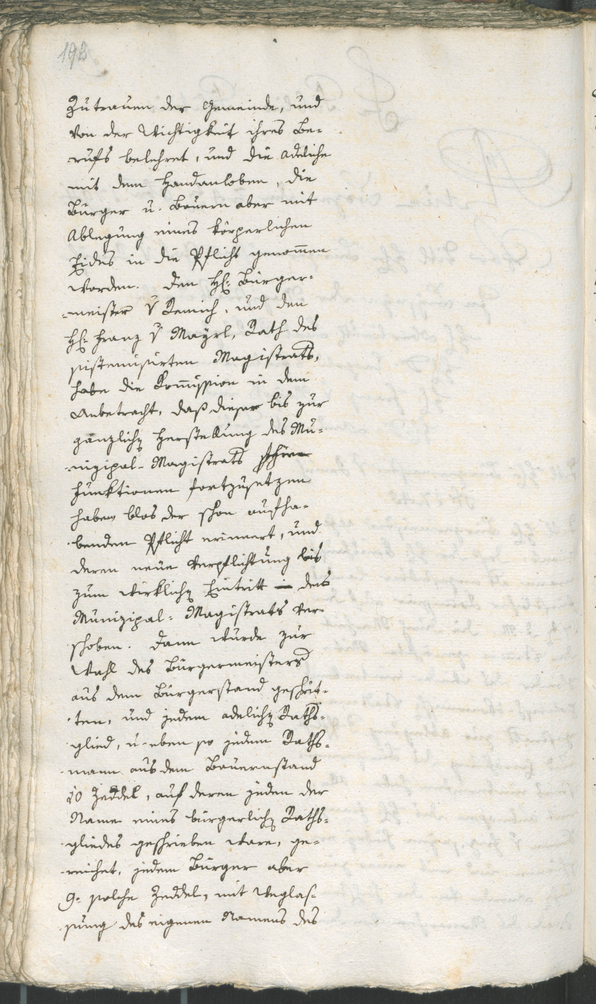 193
Zutrauen der Gemeinde, und
von der Wichtigkeit ihres Be-
rufs belehret, und die adeliche
mit dem Handanloben, die
Bürger u. Bauern aber mit
Ablegung eines körperlichen
Eides in die Pflicht genommen
worden. Den H: Bürger-
meister v Remich, und den
H: Franz v Mayrl, Rath des
sistemisirten Magistrats,
habe die Kommission in dem
Anbetracht, daß dieser bis zur
gänzlich Herstellung des Mu-
nizipal-Magistrats
Funktionen fortzusetzen
haben blos der schon aufha-
benden Pflicht erinnert, und
deren neue Verpflichtung bis
zum wirklich Eintritt des
Munizipal-Magistrats ver-
schoben. Dann wurde zur
Wahl des Bürgermeisters
aus dem Bürgerstand geschrit-
ten, und jedem adelich Raths-
glied, u. eben so jedem Raths-
mann aus dem Bauernstand
10 Zeddel, auf deren jedem der
Name eines bürgerlich Raths-
gliedes geschrieben ware, ge-
reichet, jedem Bürger aber
9. solche Zeddel, mit Weglas-
sung des eigenen Namens des